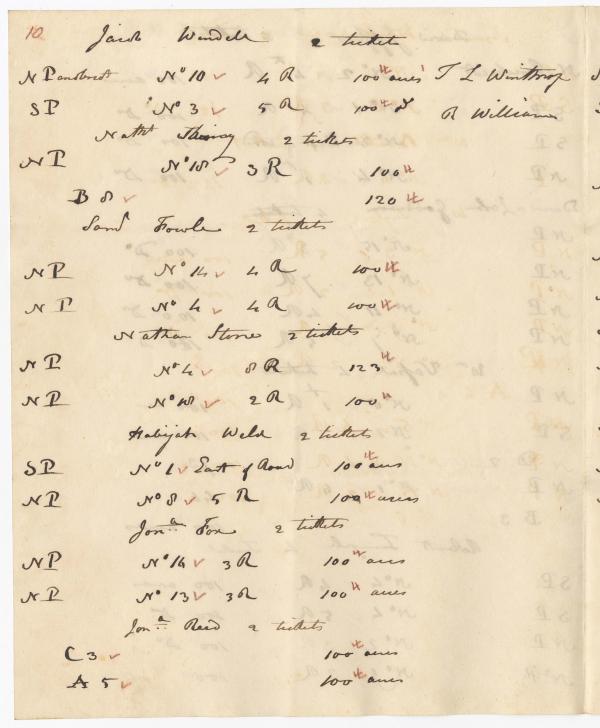 10
Jacob Wendell 2 tickets
N P No 10 ✓ 4 R 100 acres T L Winthrop
S P No 3 ✓ 5 R 100 Do R Williams
Nathl 2 tickets
N P No 18 ✓ 3 R 100
B 8 ✓ 120
Saml Fowle 2 tickets
N P No 14 ✓ 4 R 100
N P No 4 ✓ 4 R 100
Nathan Stone 2 tickets
N P No 4 ✓ 8 R 123
N P No 18 ✓ 2 R 100
Habijah Weld 2 tickets
S P No 1 ✓ East of Road 100 acres
N P No 8 ✓ 5 R 100 acres
Jona Fox 2 tickets
N P No 14 ✓ 3 R 100 acres
N P No 13 ✓ 3 R 100 acres
Jona Reed 2 tickets
C 3 ✓ 100 acres
A 5 ✓ 100 acres